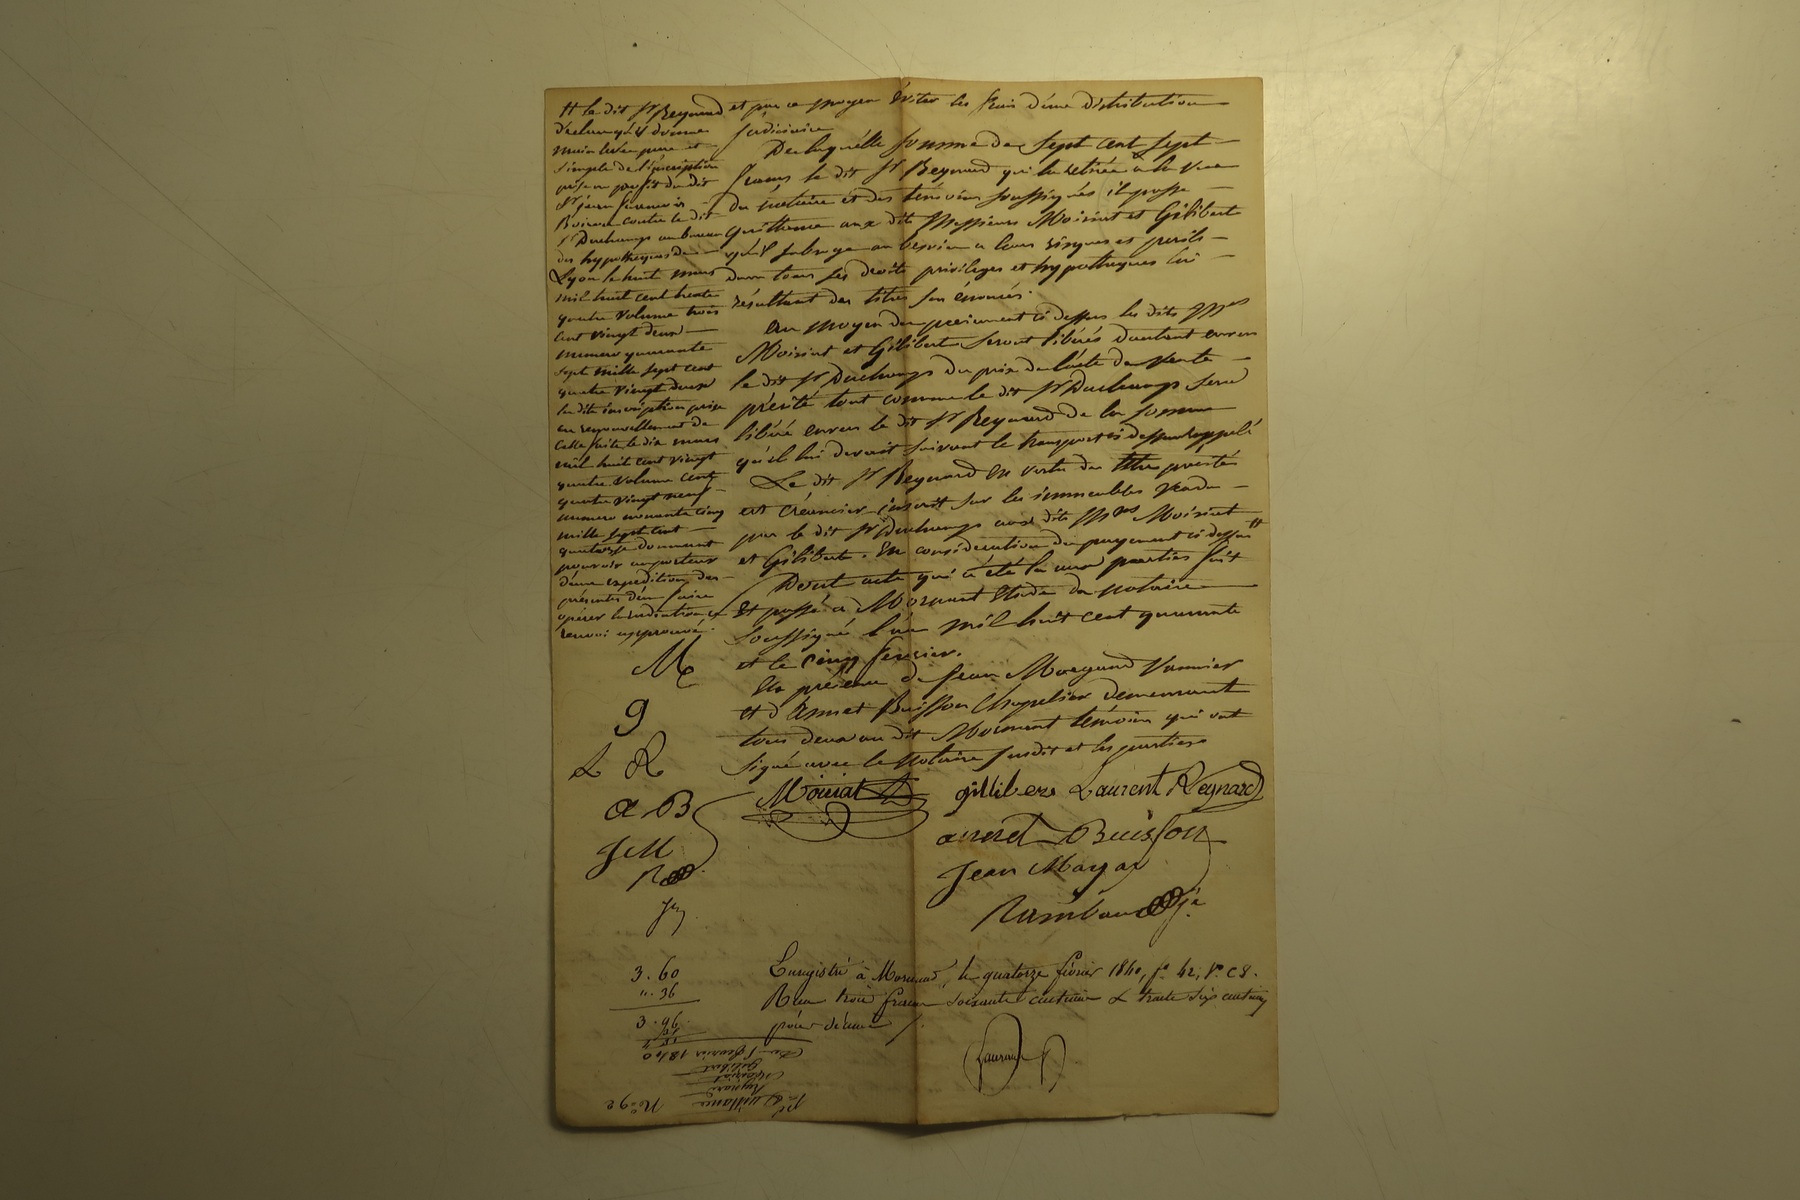 et par ce moyen éviter les frais d'une distribution
judiciaire
De laquelle somme de sept cent sept
francs le dit Sr Reynard qui l'a retirée à la vue
du notaire et des témoins soussignés il passe
quittance aux dits Messieurs Moiriat et Gilibert
qu'il subroge au besoin a leurs risques et perils
dans tous ses droits privileges et hypotheques lui
résultant des titres sus énoncés.
Au moyen du paiement ci dessus les dits Mrs
Moiriat et Gilibert seront libérés d'autant envers
le dit Sr Duchamps du prix de l'acte de vente
précité tout comme le dit Sr Duchamps sera
libéré envers le dit Sr Reynard de la somme
qu'il lui devait suivant le transport ci dessus rappelé
Le dit Sr Reynard en vertu des titres précités
est créancier inscrit sur les immeubles vendu
par le dit Sr Duchamps aux dits Mrs Moiriat
et Gilibert. En considération du payement ci dessus #
Dont acte qui a été lu aux parties fait
et passé à Mornant Etude du notaire
soussigné l'an mil huit cent quarante
et le cinq fevrier.
En présence de Jean Vannier
et d'Annet Buisson Chapelier demeurant
tous deux au dit Mornant témoins qui ont
signé avec le notaire susdit et les parties
# le dit Sr Reynard
déclare qu'il donne
main levée pure et
simple de l'inscription
prise au profit du dit
Sr Jean
contre le dit
Sr Duchamps au bureau
des hypotheques de
Lyon le huit mars
mil huit cent trente
quatre volume trois
cent vingt deux
numero quarante
sept mille sept cent
quatre vingt douze
la dite inscription prise
en renouvellement de
celle faite le dix mars
mil huit cent vingt
quatre volume cent
quatre vingt neuf
numero nonante cinq
mille sept cent
quatorze donnant
pouvoir au porteur
d'une expedition des
présentes d'en faire
opérer la radiation
renvoi approuvé.
M
g
L R
a B
J M
Moiriat
gillibert Laurent Reynard
annet Buisson
Jean
Rambaud
3. 60
". 36
3. 96
Enregistré à Mornant, le quatorze février 1840, fo 42, Vo C 8.
Reçu trois francs soixante centimes & trente six centimes
pour décime
Du 5 fevrier 1840
Gilibert
Moiriat
Reynard
Quittance
No 92